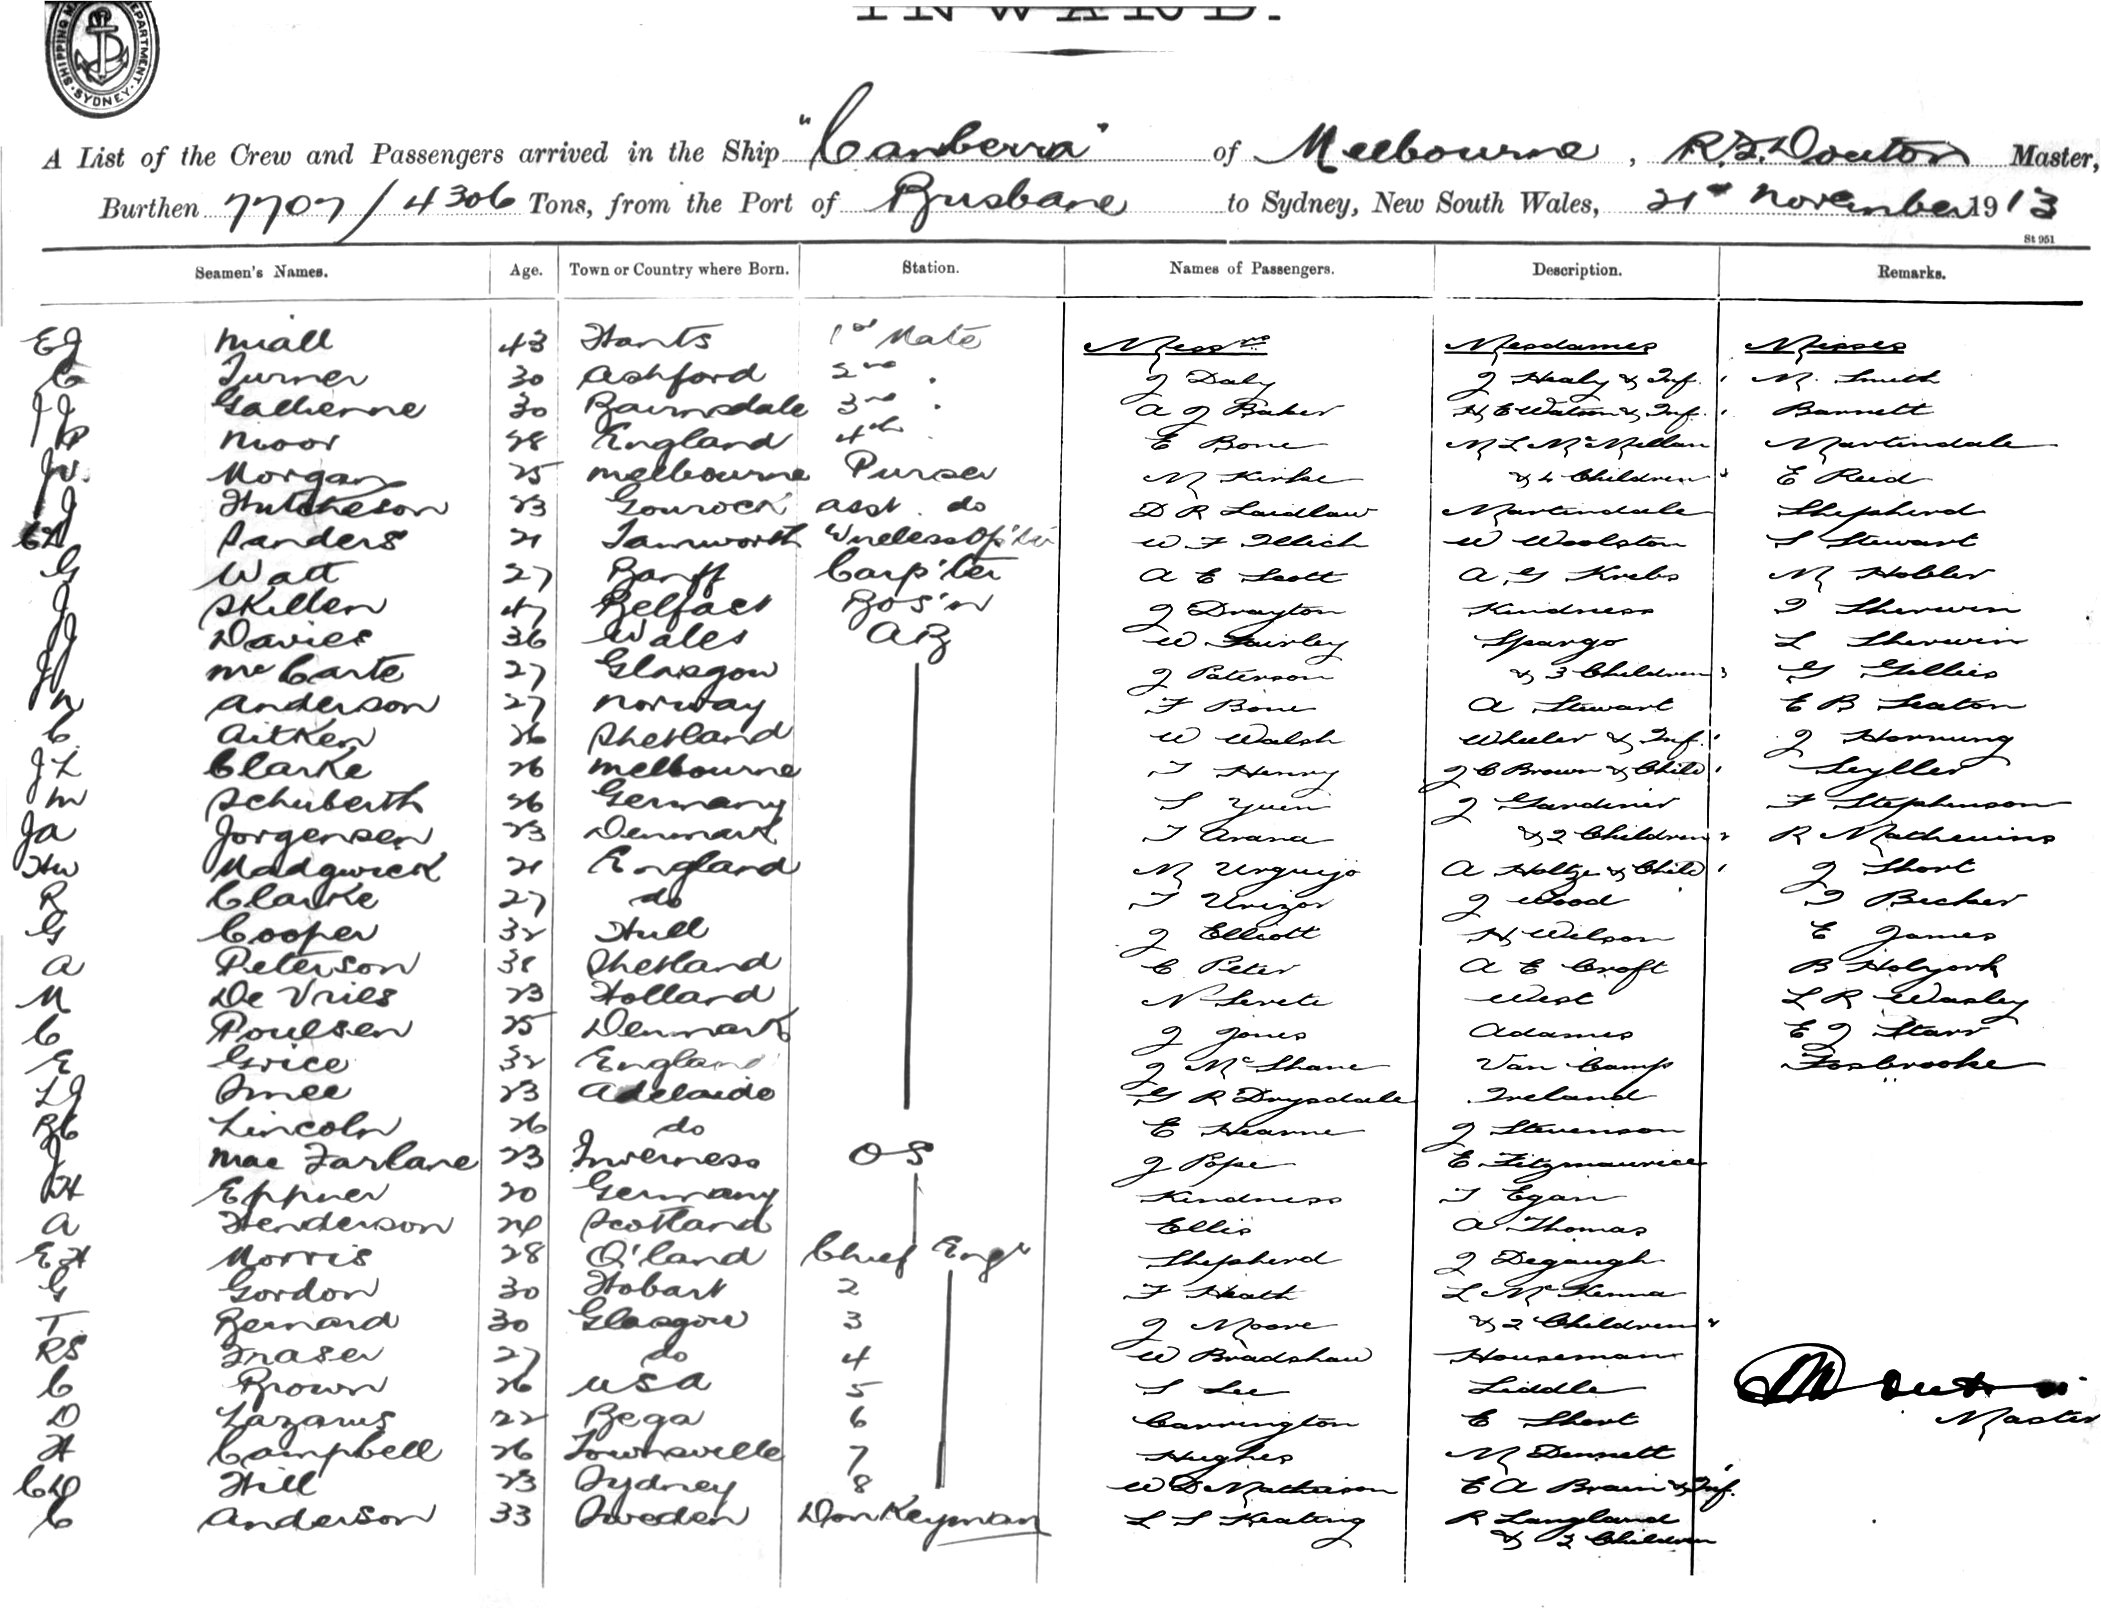 SHIPPING MASTER'S DEPARTMENT. SYDNEY.
INWARD.
A List of the Crew and Passengers arrived in the Ship "Canberra" of Melbourne, R.S. Douton Master,
Burthen 7707/4306 Tons, from the Port of Brisbane to Sydney, New South Wales, 21st November 1913
St 951
Seamen's Names. Age. Town or Country where Born. Station. Names of Passengers. Description. Remarks.
EJ Niall 43 Hants 1st Mate Messrs Mesdames Misses
C Turner 30 Ashford 2nd . J Daly J Healy & Inf. 1 M. Smith
JJ 30 Bairnsdale 3rd . A J Baker H E Watson & Inf. 1 Barnett
Moor 28 England 4th . E Bone M L McMillan Martindale
JW. Morgan 25 Melbourne Purser M Kirke & 4 Children 4 E Reid
J Hutcheson 23 Gourock asst. do D R Laidlaw Martindale Shepherd
Sanders 21 Tamworth Wireless Op'tor W F Illich W Woolston S Stewart
G Watt 27 Banff Carp'ter A E Scott A G Krebs M Hobler
J Skillen 47 Belfast Bos'n J Drayton Kindness I Sherwin
J Davies 36 Wales AB W Fairley Spargo L Sherwin
J McCarte 27 Glasgow J Paterson & 3 Children 3 G Gillies
N Anderson 27 Norway F Bone A Stewart E B Seaton
C Aitken 26 Shetland W Walsh Wheeler & Inf. 1 J Hornung
JL Clarke 26 Melbourne T Henry J C Brown & Child 1 Seyller
M Schuberth 26 Germany S Yuen J Gardiner F Stephenson
JA Jorgensen 23 Denmark T Arana & 2 Children 2 R Mathewins
HW Madgwick 21 England M Urquijo A Holtze & Child 1 J Short
R Clarke 27 do T Unizor J Wood I Becher
G Cooper 32 Hull J Elliott H Wilson E James
A Peterson 38 Shetland C Peter A E Croft B Holyork
M De Vries 23 Holland N Levete West L R Wasley
C Poulsen 25 Denmark J Jones Adames E J Starr
E Grice 32 England J McShane Van Camp Fosbrooke
LJ Smee 23 Adelaide G R Drysdale Ireland
BC Lincoln 26 do E Hearne J Stevenson
J MacFarlane 23 Inverness OS J Pope E Fitzmaurice
H Eppner 20 Germany Kindness T Egan
A Henderson 24 Scotland Ellis A Thomas
EH Morris 28 Q'land Chief Engr Shepherd J Degaugh
G Gordon 30 Hobart 2 F Heath L McKenna
T Bernard 30 Glasgow 3 J Moore & 2 Children 2
RS Fraser 27 do 4 W Bradshaw Houseman
C Brown 26 USA 5 S Lee Liddle
D Lazarus 22 Bega 6 Carrington E Short
H Campbell 26 Townsville 7 Hughes M Dennett
CD Hill 23 Sydney 8 W D Mathison E A Brain & Inf. 1
C Anderson 33 Sweden Donkeyman L S Keating R Langland
& 2 Children
Douton
Master